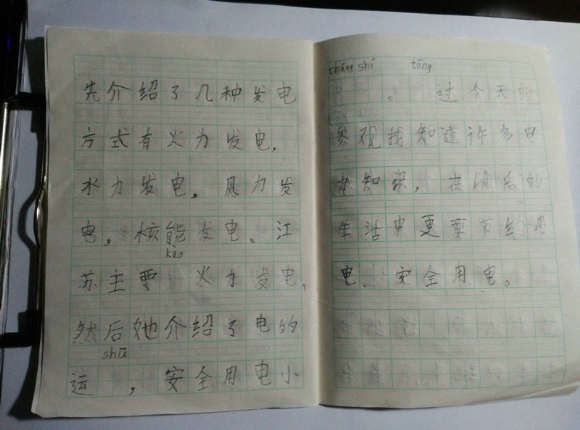 先介绍了几种发电
方式有火力发电,
水力发电。风力发
电。核能发电。江
kào
苏主要 火力发电,
然后她介绍了电的
shū
运 ,安全用电小
cháng shí tōng
。 过今天的
参观我知道许多电
知识,在以后的
生活中更要节约用
电、安全用电。